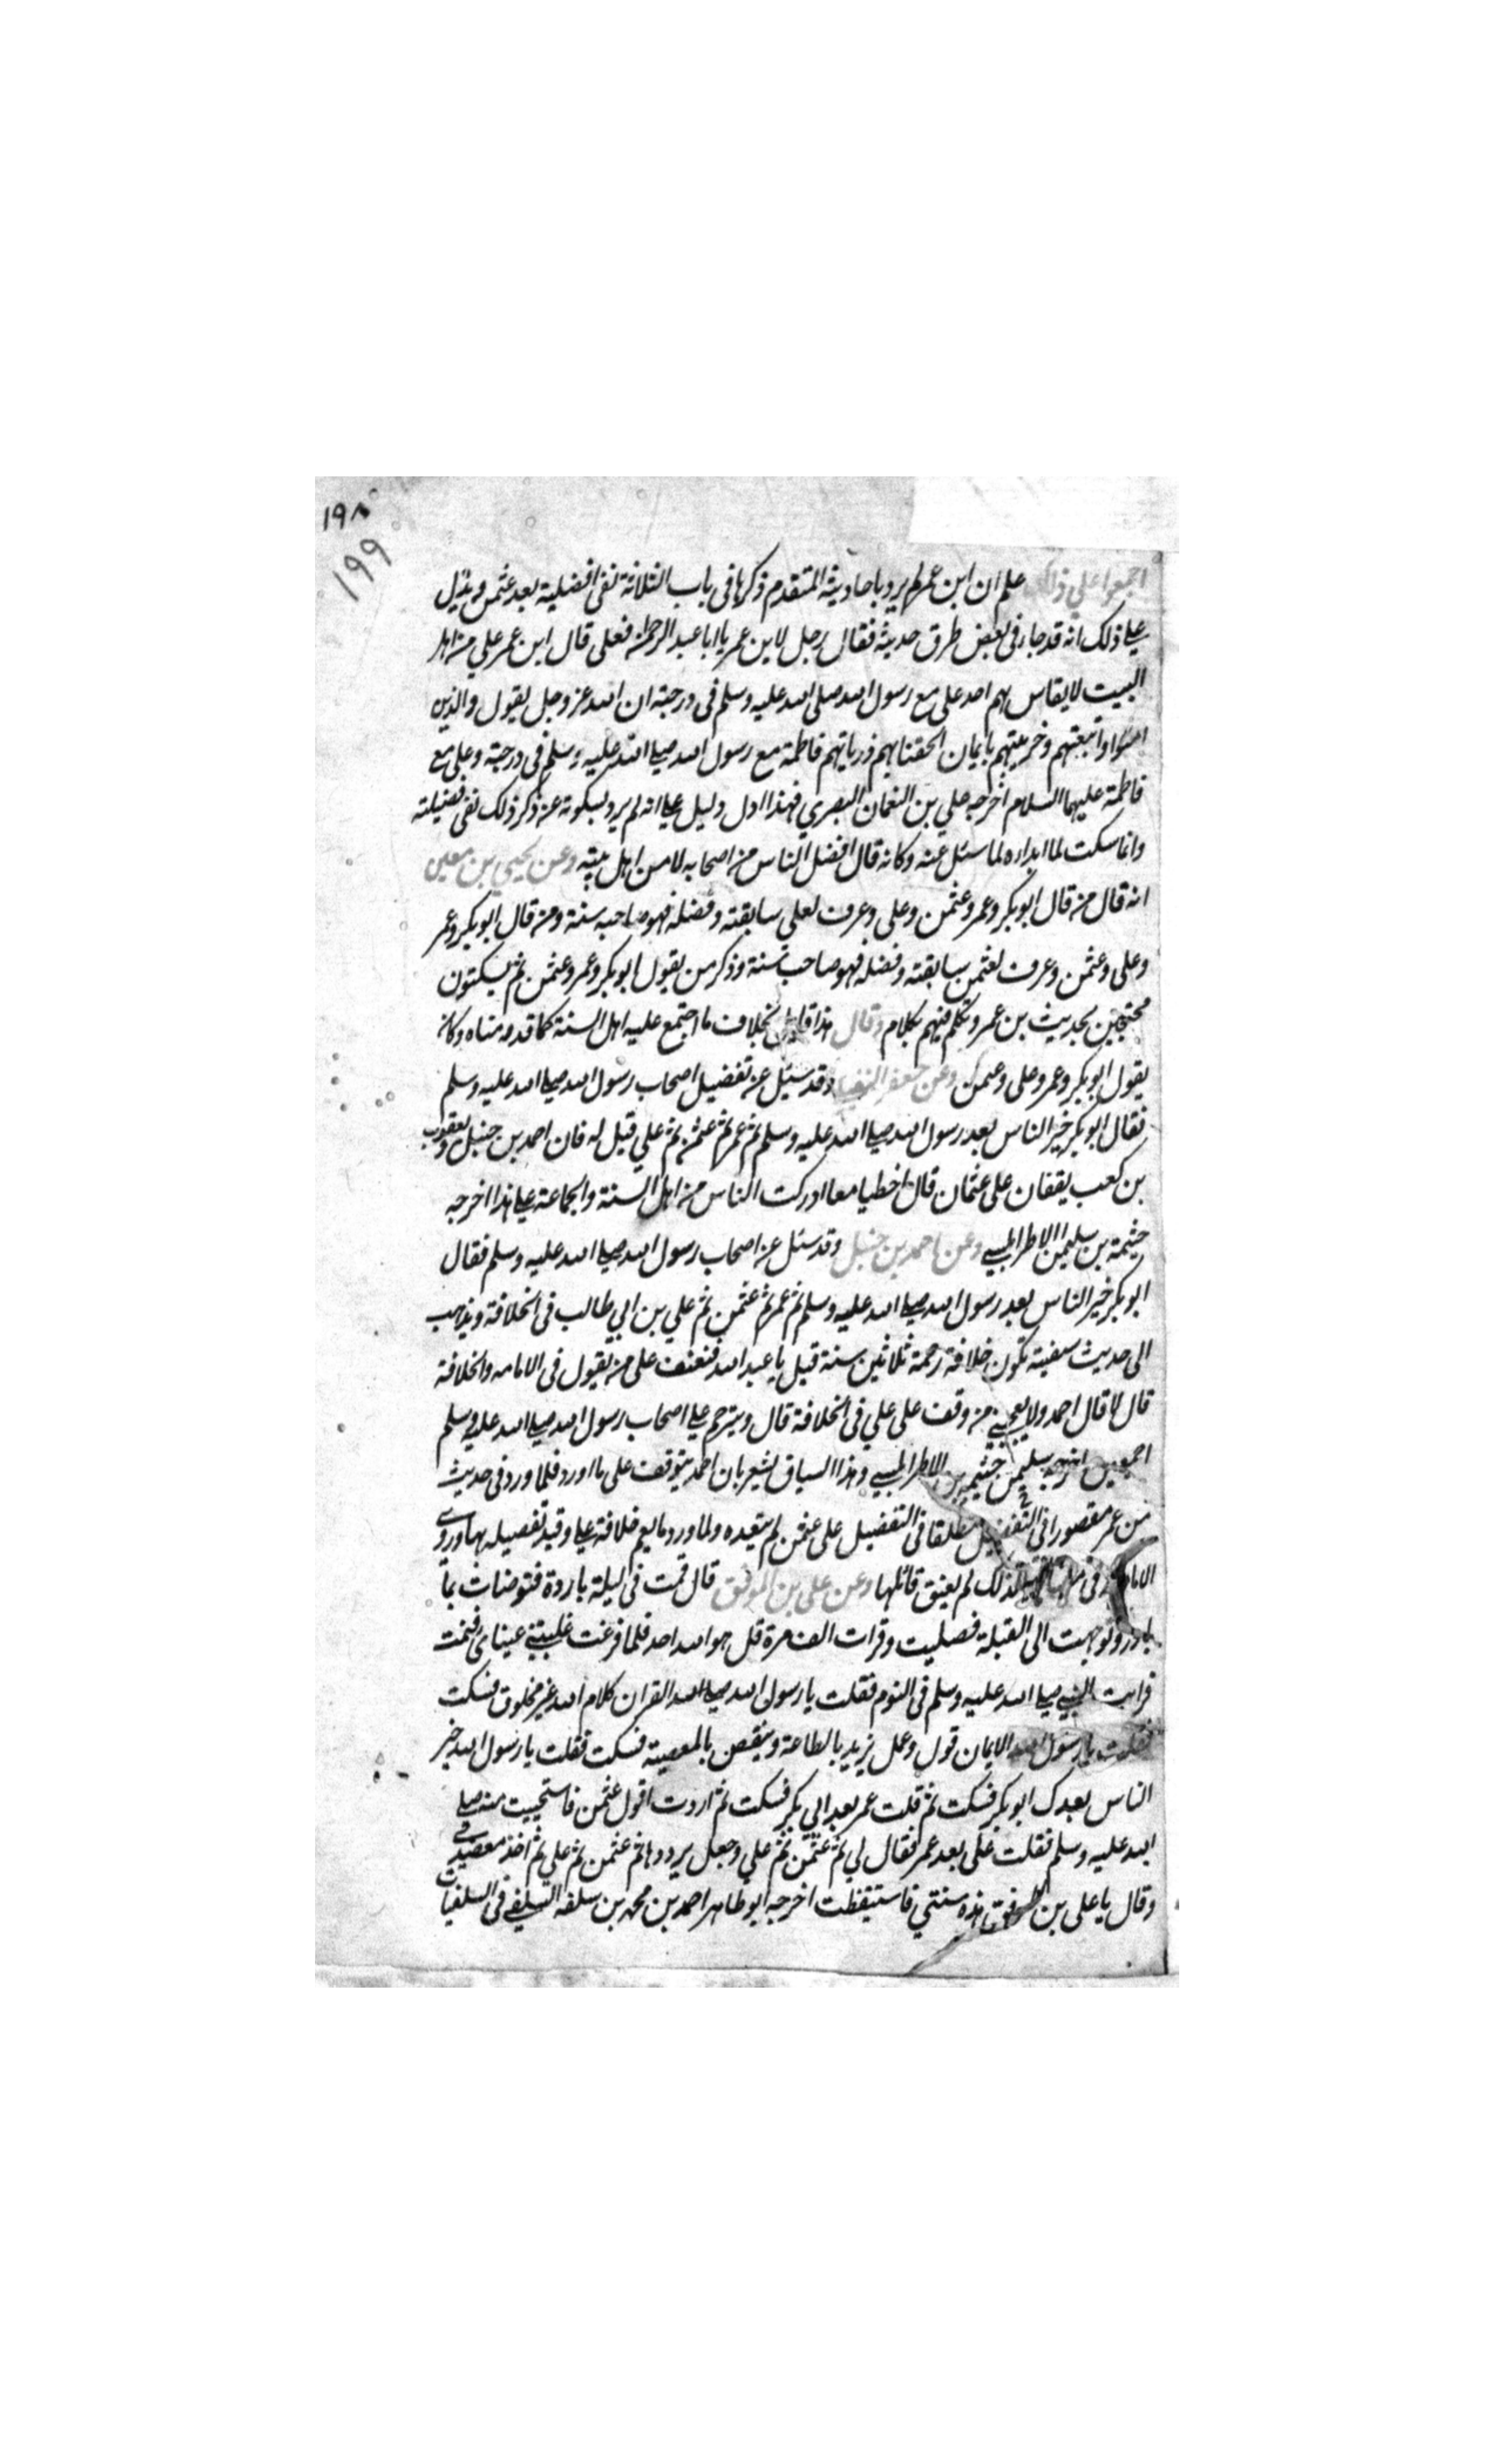 ١٩٨
١٩٩
اجمعوا على ذلك علم ان ابن عمر لم يرد باحاديثه المتقدم ذكرها فى باب الثلاثة نفى افضلية بعد عثمن ويدل
على ذلك انه قد جاء فى بعض طرق حديثه فقال رجل لابن عمر يا ابا عبد الرحمن فعلى قال ابن عمر علي من اهل
البيت لا يقاس بهم احد على مع رسول الله صلى الله عليه وسلم فى درجته ان الله عز وجل يقول والذين
امنوا واتبعتهم وذريتهم بايمان الحقنا بهم ذرياتهم فاطمة مع رسول الله صلى الله عليه وسلم فى درجته وعلى مع
فاطمة عليهما السلام اخرجه علي بن النعمان البصري فهذا ادل دليل على انه لم يرد بسكوته عن ذكر ذلك نفى فضيلته
وانما سكت لما ابداه لما سئل عنه وكانه قال افضل الناس من اصحابه لا من اهل بيته وعن يحيى بن معين
انه قال من قال ابو بكر وعمر وعثمن وعلى وعرف لعلي سابقته وفضله فهو صاحب سنة ومن قال ابو بكر وعمر
وعلى وعثمن وعرف لعثمن سابقته وفضله فهو صاحب سنة وذكر من يقول ابو بكر وعمر وعثمن ثم يسكتون
محتجين بحديث بن عمر وتكلم فيهم بكلام وقال هذا قايل بخلاف ما اجتمع عليه اهل السنة كما قدمناه وكان
يقول ابو بكر وعمر وعلى وعثمن وعن جعفر وقد سئل عن تفضيل اصحاب رسول الله صلى الله عليه وسلم
فقال ابو بكر خير الناس بعد رسول الله صلى الله عليه وسلم ثم عمر ثم عثمن ثم علي قيل له فان احمد بن حنبل ويعقوب
بن كعب يقفان على عثمان قال اخطيا معا ادركت الناس من اهل السنة والجماعة على هذا اخرجه
خيثمة بن سليمن الاطرابلسي وعن احمد بن حنبل وقد سئل عن اصحاب رسول الله صلى الله عليه وسلم فقال
ابو بكر خير الناس بعد رسول الله صلى الله عليه وسلم ثم عمر ثم عثمن ثم علي بن ابي طالب فى الخلافة ويذهب
الى حديث سفينة تكون خلافة رحمة ثلاثين سنة قيل يا عبد الله فتعنف على من يقول فى الامامه والخلافة
قال لا قال احمد ولا يعجبني من وقف على علي فى الخلافة قال ويترحم على اصحاب رسول الله صلى الله عليه وسلم
اجمعين سليمن خيثمه بن الاطرابلسي وهذا السياق يشعر بان احمد يتوقف على ما اورد فلما ورد فى حديث
بن عمر مقصورا فى التفضيل مطلقا فى التفضيل على عثمن لم يتعده ولما ورد ما يعم خلافة على وقيد تفصيله بها وروى
فى لذلك لم يعنق قائلها وعن على بن الموفق قال قمت فى ليلة باردة فتوضات بما
بارد وتوجهت الى القبلة فصليت وقرات الف مرة قل هو الله احد فلما فرغت غلبتني عيناى فنمت
فرايت النبي صلى الله عليه وسلم فى النوم فقلت يا رسول الله صلى الله القران كلام الله غير مخلوق فسكت
فقلت يا رسول الله الايمان قول وعمل يزيد بالطاعة وينقص بالمعصية فسكت فقلت يا رسول الله خير
الناس بعدك ابو بكر فسكت ثم قلت عمر بعد ابي بكر فسكت ثم اردت اقول عثمن فاستحييت منه صلى
الله عليه وسلم فقلت على بعد عمر فقال لي ثم عثمن ثم علي وجعل يرددها ثم عثمن ثم علي ثم اخذ معصدي
وقال يا على بن الموفق هذه سنتي فاستيقظت اخرجه ابو طاهر احمد بن محمد بن سلفه السلفي فى السلفيات